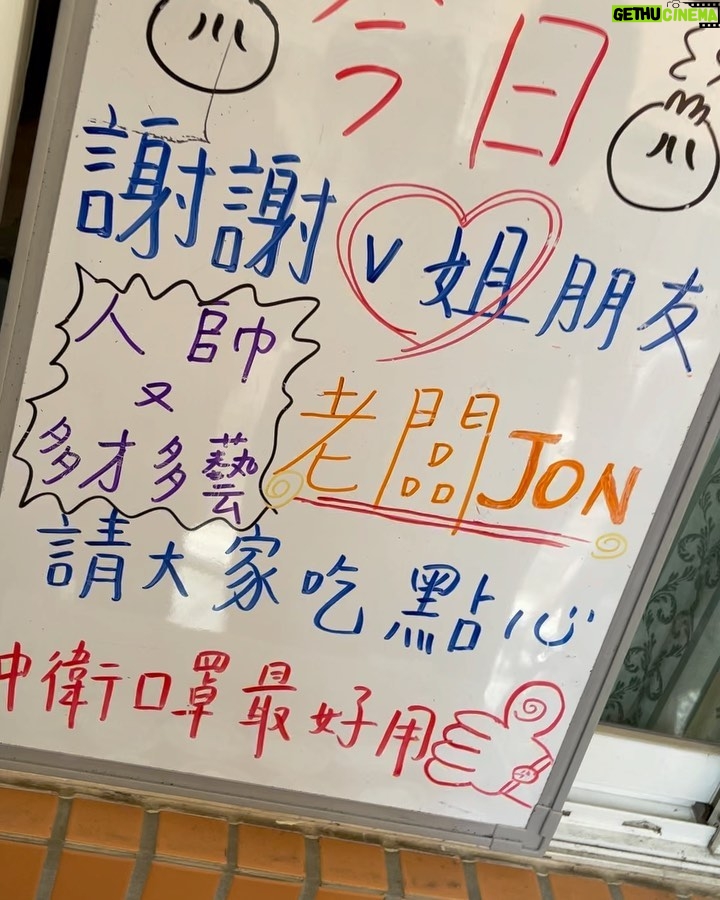 GETHUCINEMA
今日
謝謝 V 姐 朋友
人 帥
又
多才多藝
老闆 JON
請大家吃點心
中衛口罩最好用